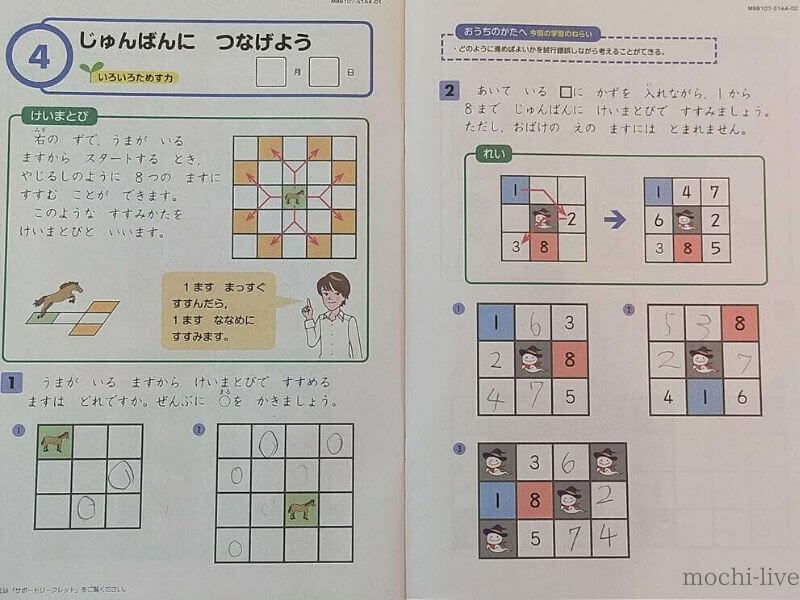 MBB107-S1A4-01
4
じゅんばんに つなげよう
いろいろためす力
月 日
けいまとび
みぎ
右の ずで、うまが いる
ますから スタートする とき、
やじるしのように 8つの ますに
すすむ ことが できます。
このような すすみかたを
けいまとびと いいます。
1ます まっすぐ
すすんだら、
1ます ななめに
すすみます。
1 うまが いる ますから けいまとびで すすめる
まる
ますは どれですか。ぜんぶに ○を かきましょう。
1 2
は「サポートリーフレット」をご覧ください。
MBB107-S1A4-02
おうちのかたへ 今回の学習のねらい
・どのように進めばよいかを試行錯誤しながら考えることができる。
2 あいて いる □に かずを 入れながら、1から
8まで じゅんばんに けいまとびで すすみましょう。
ただし、おばけの えの ますには とまれません。
れい
1
2
3 8
1 4 7
6 2
3 8 5
1
1 6 3
2 8
4 7 5
2
5 3 8
2 7
4 1 6
3
3 6
1 8 2
5 7 4
mochi-live